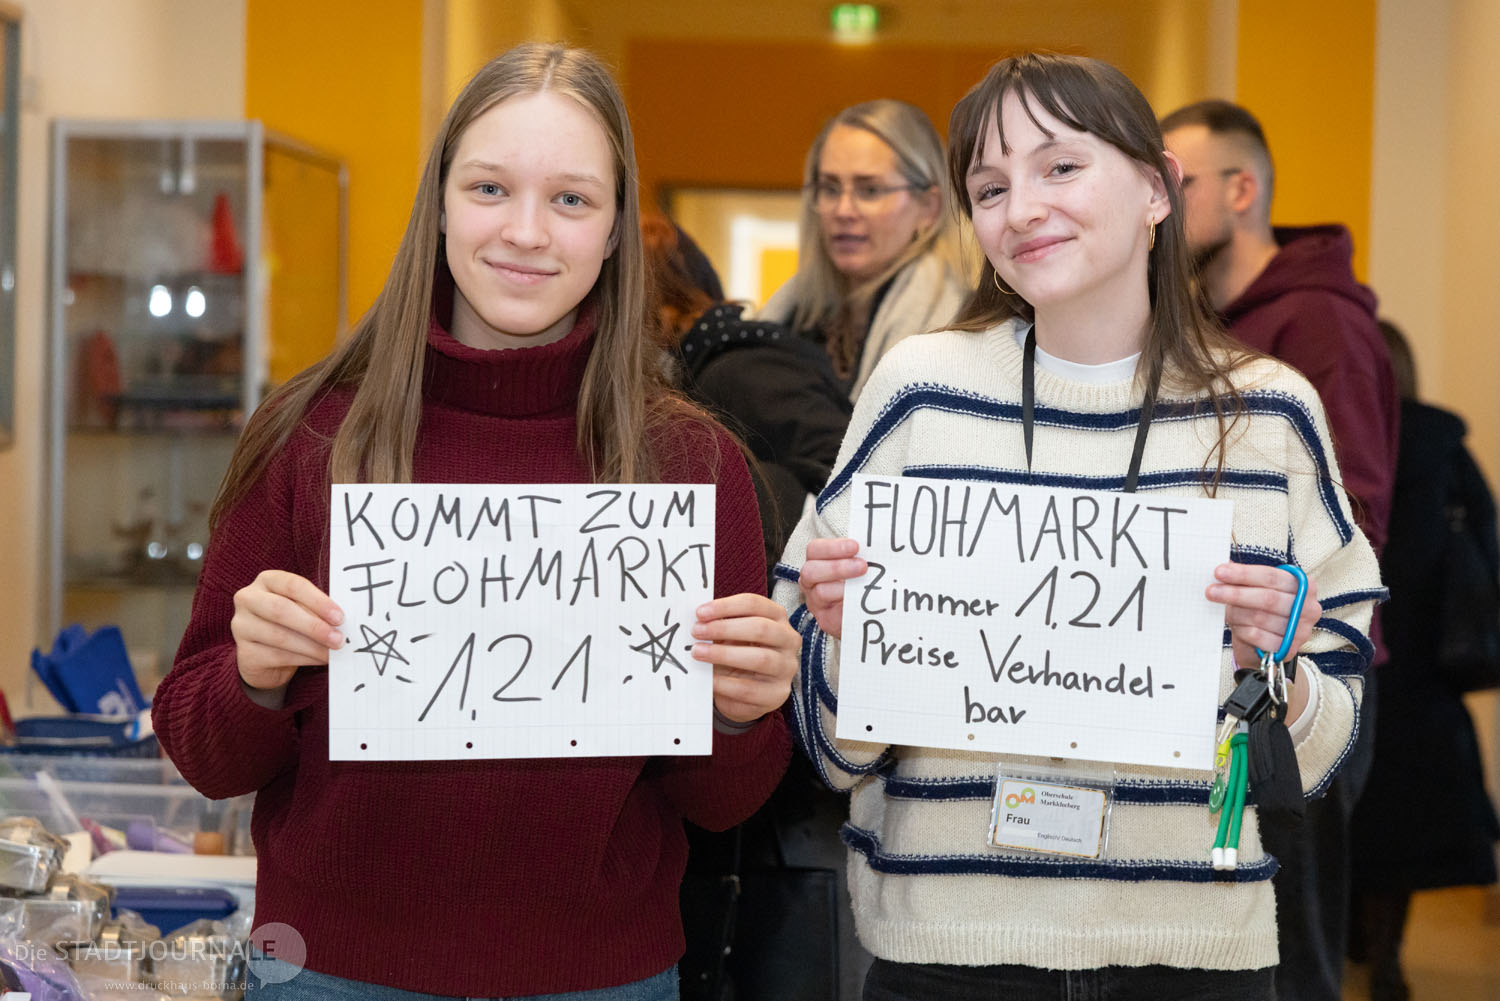 KOMMT ZUM
FLOHMARKT
1.21
FLOHMARKT
Zimmer 1.21
Preise Verhandel-
bar
Oberschule
Markkleeberg
Frau
Englisch/ Deutsch
Die STADTJOURNALE
www.druckhaus-borna.de